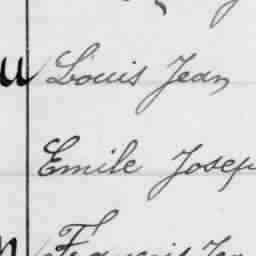 u Louis Jean
Emile Josep
François Je